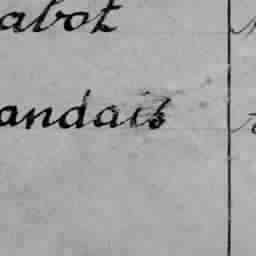 abot
andais